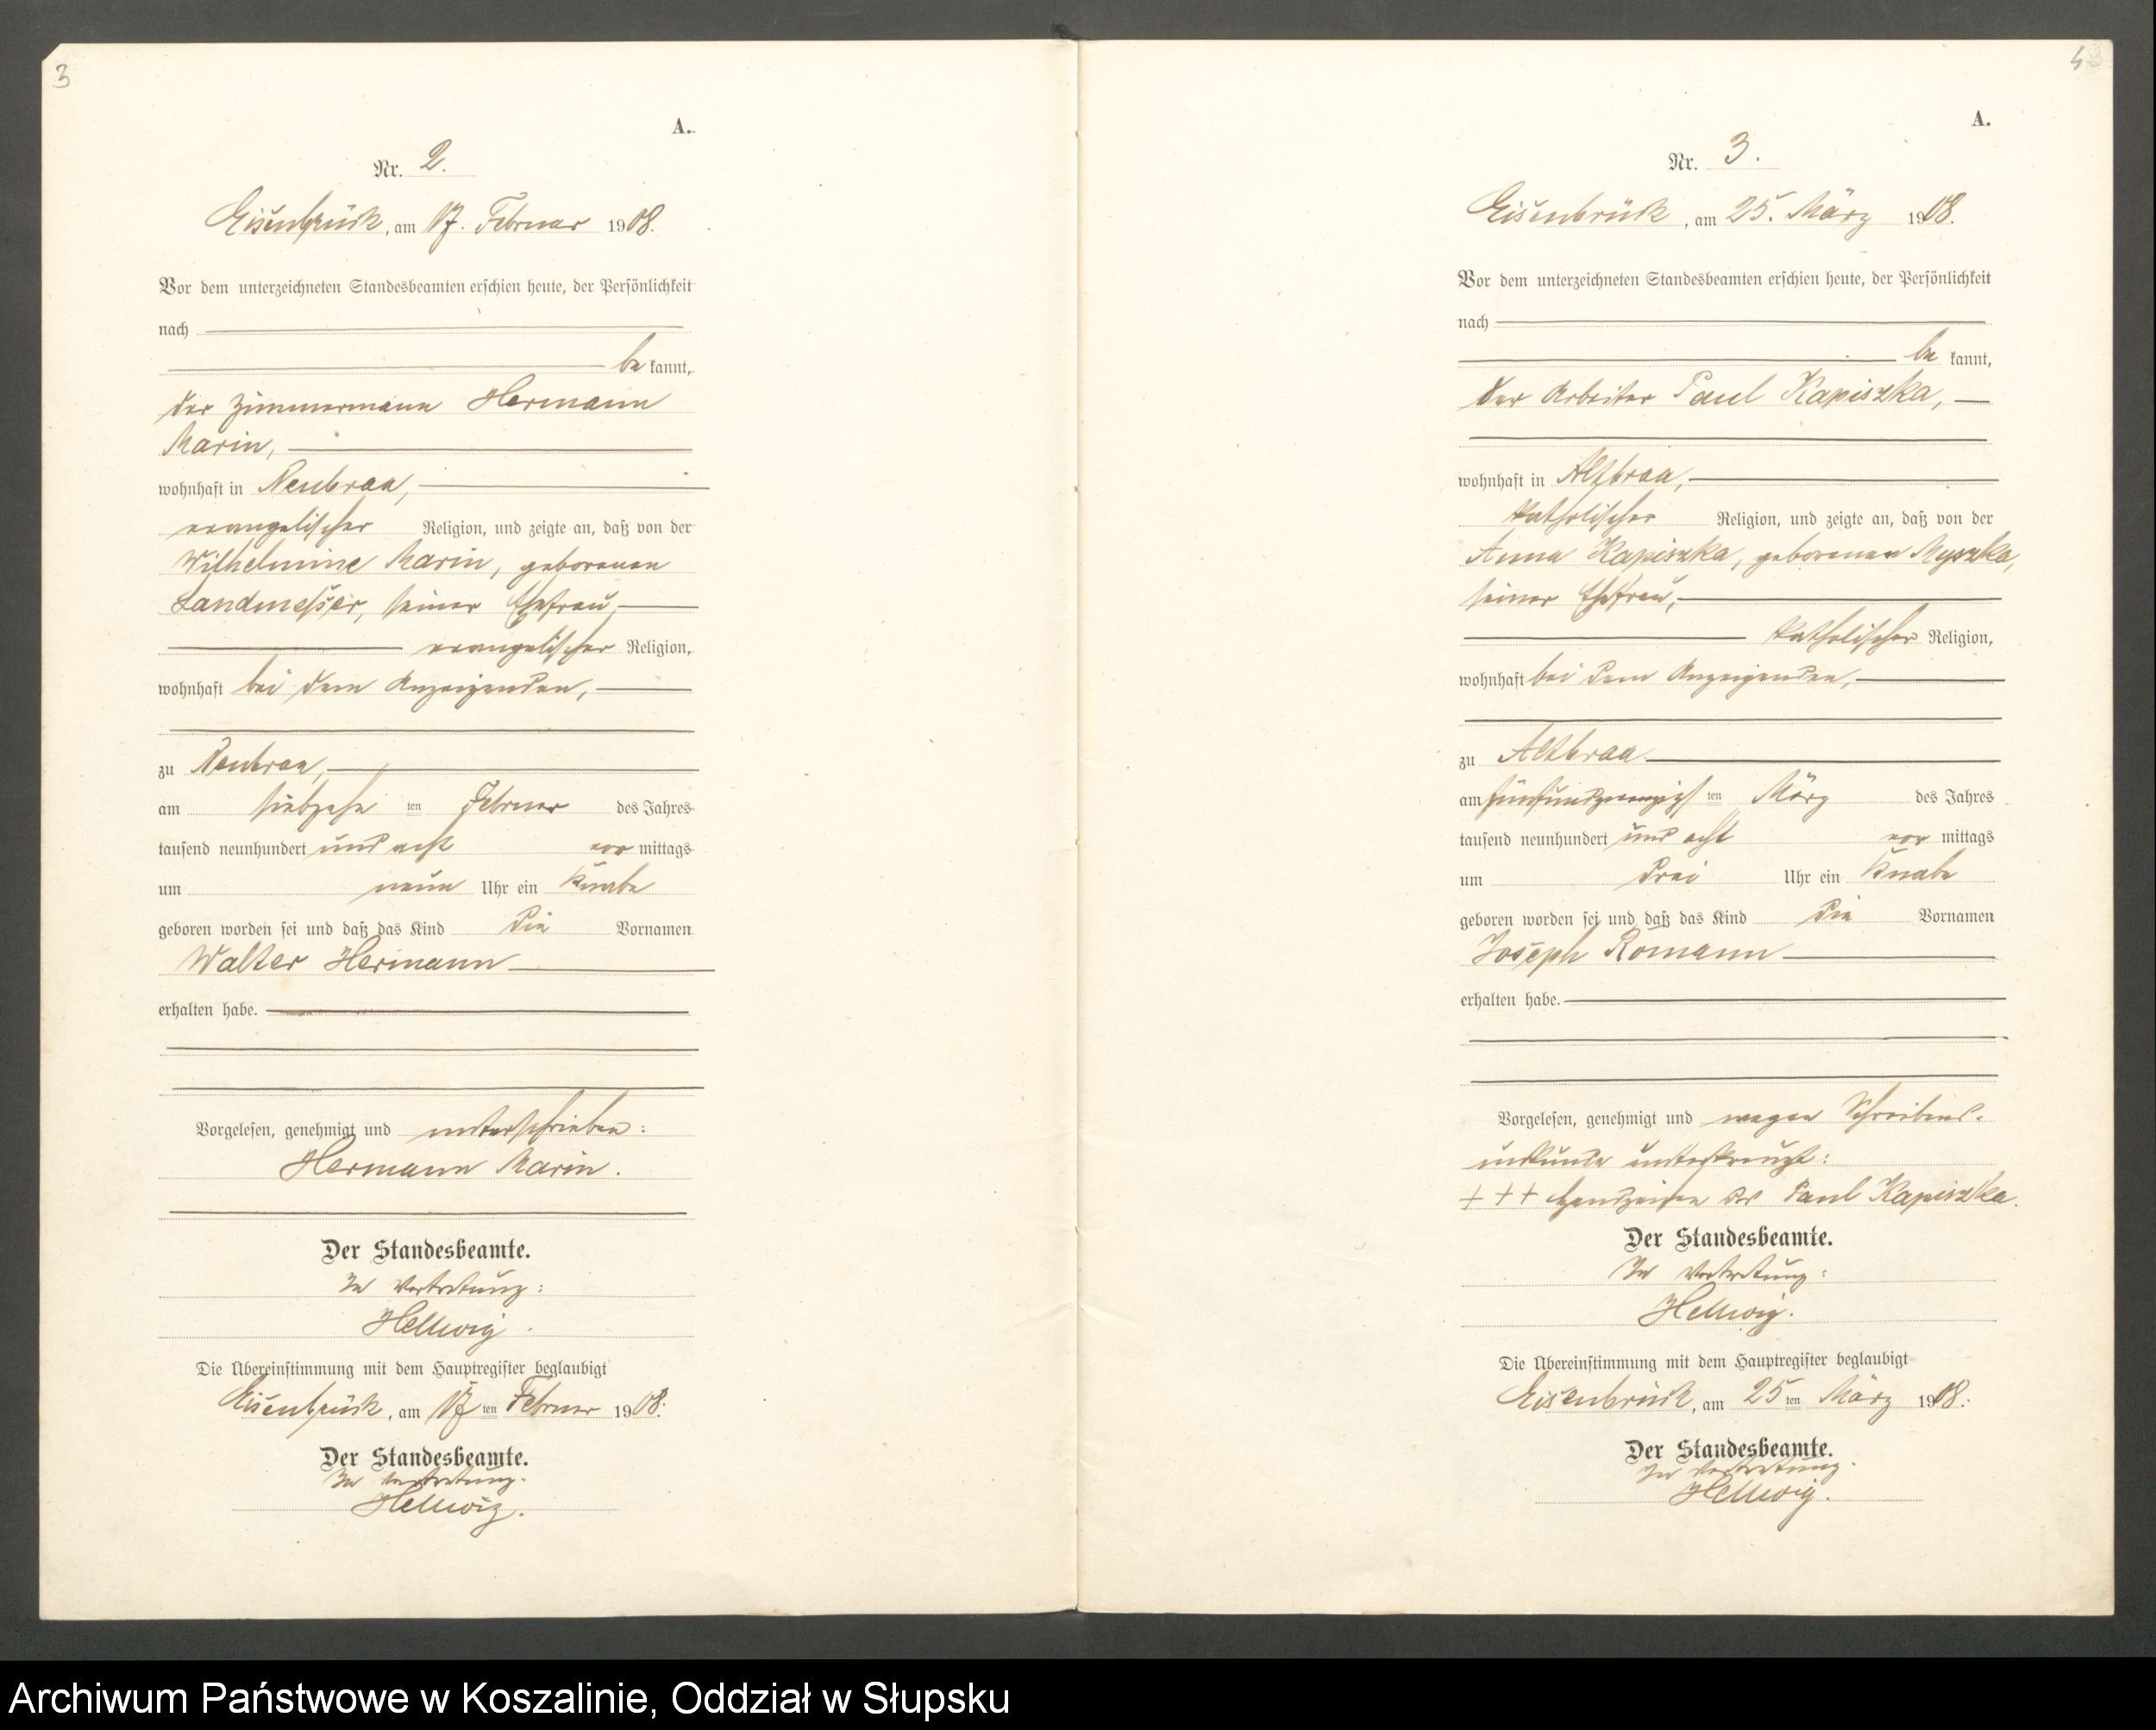 3
A.
Nr. 2.
Eisenbrück, am 17. Februar 1908.
Vor dem unterzeichneten Standesbeamten erschien heute, der Persönlichkeit
nach
be kannt,
der Zimmermann Hermann
Marin,
wohnhaft in Neubraa,
evangelischer Religion, und zeigte an, daß von der
Wilhelmine Marin, geborenen
Landmesser, seiner Ehefrau,
evangelischer Religion,
wohnhaft bei dem Anzeigenden,
zu Neubraa,
am siebzehn ten Februar des Jahres
tausend neunhundert und acht vor mittags
um neun Uhr ein Knabe
geboren worden sei und daß das Kind die Vornamen
Walter Hermann
erhalten habe.
Vorgelesen, genehmigt und unterschrieben:
Hermann Marin.
Der Standesbeamte.
In Vertretung:
Hellwig.
Die Übereinstimmung mit dem Hauptregister beglaubigt
Eisenbrück, am 17 ten Februar 1908.
Der Standesbeamte.
In Vertretung.
Hellwig.
A.
Nr. 3.
Eisenbrück, am 25. März 1908.
Vor dem unterzeichneten Standesbeamten erschien heute, der Persönlichkeit
nach
be kannt,
der Arbeiter Paul Kapiszka,
wohnhaft in Altbraa,
katholischer Religion, und zeigte an, daß von der
Anna Kapiszka, geborenen Myszka,
seiner Ehefrau,
katholischer Religion,
wohnhaft bei dem Anzeigenden,
zu Altbraa
am fünfundzwanzigs ten März des Jahres
tausend neunhundert und acht vor mittags
um drei Uhr ein Knabe
geboren worden sei und daß das Kind die Vornamen
Joseph Romann
erhalten habe.
Vorgelesen, genehmigt und wegen Schreibens-
unkunde unterkreuzt:
+++ Handzeichen des Paul Kapiszka.
Der Standesbeamte.
In Vertretung:
Hellwig.
Die Übereinstimmung mit dem Hauptregister beglaubigt
Eisenbrück, am 25 ten März 1908.
Der Standesbeamte.
In Vertretung.
Hellwig.
Archiwum Państwowe w Koszalinie, Oddział w Słupsku